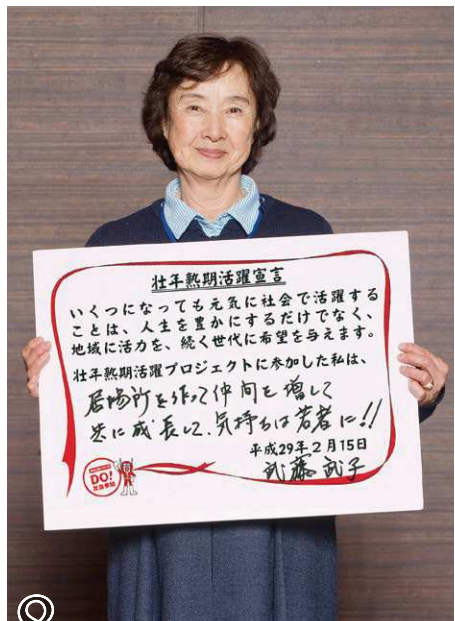 壮年熟期活躍宣言
いくつになっても元気に社会で活躍する
ことは、人生を豊かにするだけでなく、
地域に活力を、続く世代に希望を与えます。
壮年熟期活躍プロジェクトに参加した私は、
居場所を作って仲間を増して
共に成長して、気持ちは若者に!!
平成29年2月15日
武藤
DO!
社会参加